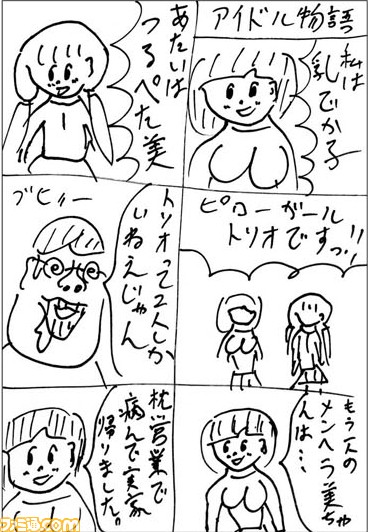 アイドル物語
私は
乳でか子
あたいは
つるぺた美
ピローガール
トリオですっ!!
トリオって2人しか
いねえじゃん
ブヒィー
もう一人の
メンヘラ美ちゃ
んは…
枕営業で
病んで実家
帰りました。
ファミ通.com